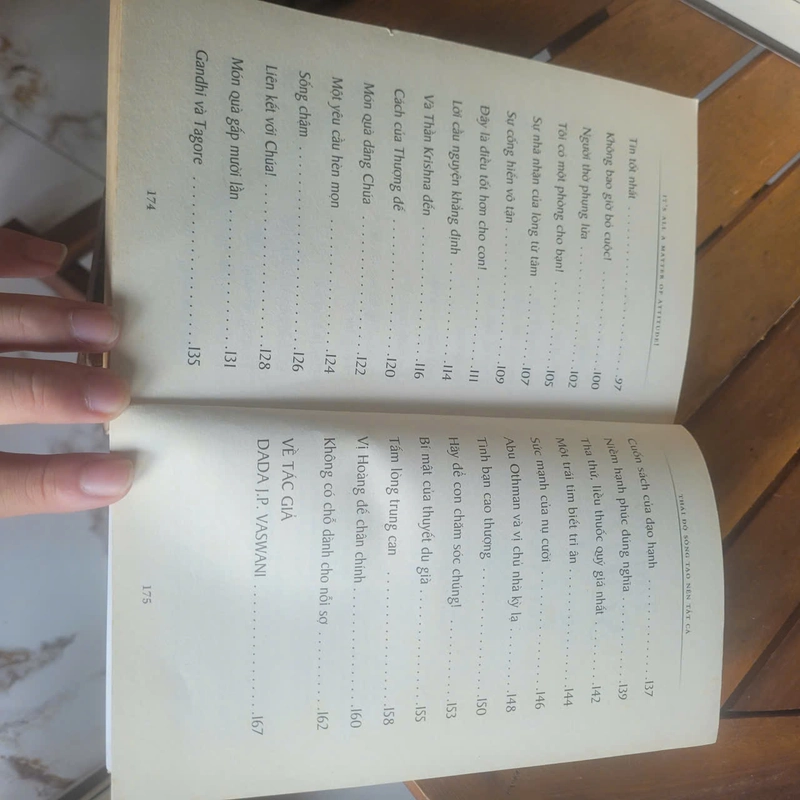 IT'S ALL A MATTER OF ATTITUDE!
Tin tốt nhất . . . . . . . . . . . . . . . . . . . . . . .97
Không bao giờ bỏ cuộc! . . . . . . . . . . . . . .100
Người thờ phụng lửa . . . . . . . . . . . . . . .102
Tôi có một phòng cho bạn! . . . . . . . . . . . .105
Sự nhã nhặn của lòng từ tâm . . . . . . . . . .107
Sự cống hiến vô tận . . . . . . . . . . . . . . . .109
Đây là điều tốt hơn cho con! . . . . . . . . . .111
Lời cầu nguyện khẳng định . . . . . . . . . . .114
Và Thần Krishna đến . . . . . . . . . . . . . . .116
Cách của Thượng đế . . . . . . . . . . . . . . .120
Món quà dâng Chúa . . . . . . . . . . . . . . .122
Một yêu cầu hèn mọn . . . . . . . . . . . . . .124
Sống chậm . . . . . . . . . . . . . . . . . . . . .126
Liên kết với Chúa! . . . . . . . . . . . . . . . .128
Món quà gấp mười lần . . . . . . . . . . . . .131
Gandhi và Tagore . . . . . . . . . . . . . . . .135
174
THÁI ĐỘ SỐNG TẠO NÊN TẤT CẢ
Cuốn sách của đạo hạnh . . . . . . . . . . . .137
Niềm hạnh phúc đúng nghĩa . . . . . . . . . .139
Tha thứ, liều thuốc quý giá nhất . . . . . . .142
Một trái tim biết tri ân . . . . . . . . . . . . .144
Sức mạnh của nụ cười . . . . . . . . . . . . .146
Abu Othman và vị chủ nhà kỳ lạ . . . . . . .148
Tình bạn cao thượng . . . . . . . . . . . . . .150
Hãy để con chăm sóc chúng! . . . . . . . . .153
Bí mật của thuyết du già . . . . . . . . . . . .155
Tấm lòng trung can . . . . . . . . . . . . . . .158
Vị Hoàng đế chân chính . . . . . . . . . . . .160
Không có chỗ dành cho nỗi sợ . . . . . . . .162
VỀ TÁC GIẢ
DADA J.P. VASWANI . . . . . . . . . . . . . . .167
175